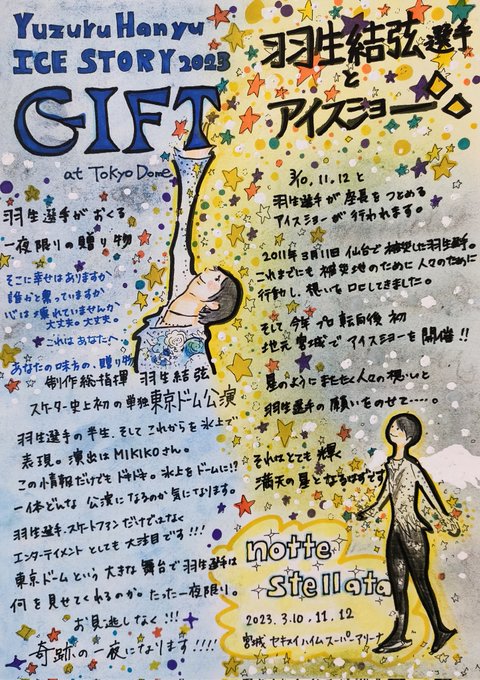 Yuzuru Hanyu
ICE STORY 2023
GIFT
at Tokyo Dome
羽生選手がおくる
一夜限りの贈り物
そこに幸せはありますか
誰かと繋っていますか
心は壊れていませんか
大丈夫。大丈夫。
これはあなたへ
あなたの味方の、贈り物
制作総指揮 羽生結弦
スケーター史上初の単独東京ドーム公演
羽生選手の半生、そしてこれからを氷上で
表現。演出はMIKIKOさん。
この情報だけでもドキドキ。氷上をドームに!?
一体どんな公演になるのか気になります。
羽生選手、スケートファンだけではなく
エンターテイメントとしても大注目です!!!
東京ドームという大きな舞台で羽生選手は
何を見せてくれるのか。たった一夜限り。
お見逃しなく!!!
奇跡の一夜になります!!!!
羽生結弦選手
と
アイスショー
3/10,11,12と
羽生選手が座長をつとめる
アイスショーが行われます。
2011年3月11日仙台で被災した羽生選手。
これまでにも被災地のために人々のために
行動し、想いを口にしてきました。
そして今年プロ転向後初
地元宮城でアイスショーを開催!!
星のようにまたたく人々の想いと
羽生選手の願いをのせて……。
それはとても輝く
満天の星となるはずです
notte
stellata
2023.3.10,11,12
宮城 セキスイハイムスーパーアリーナ